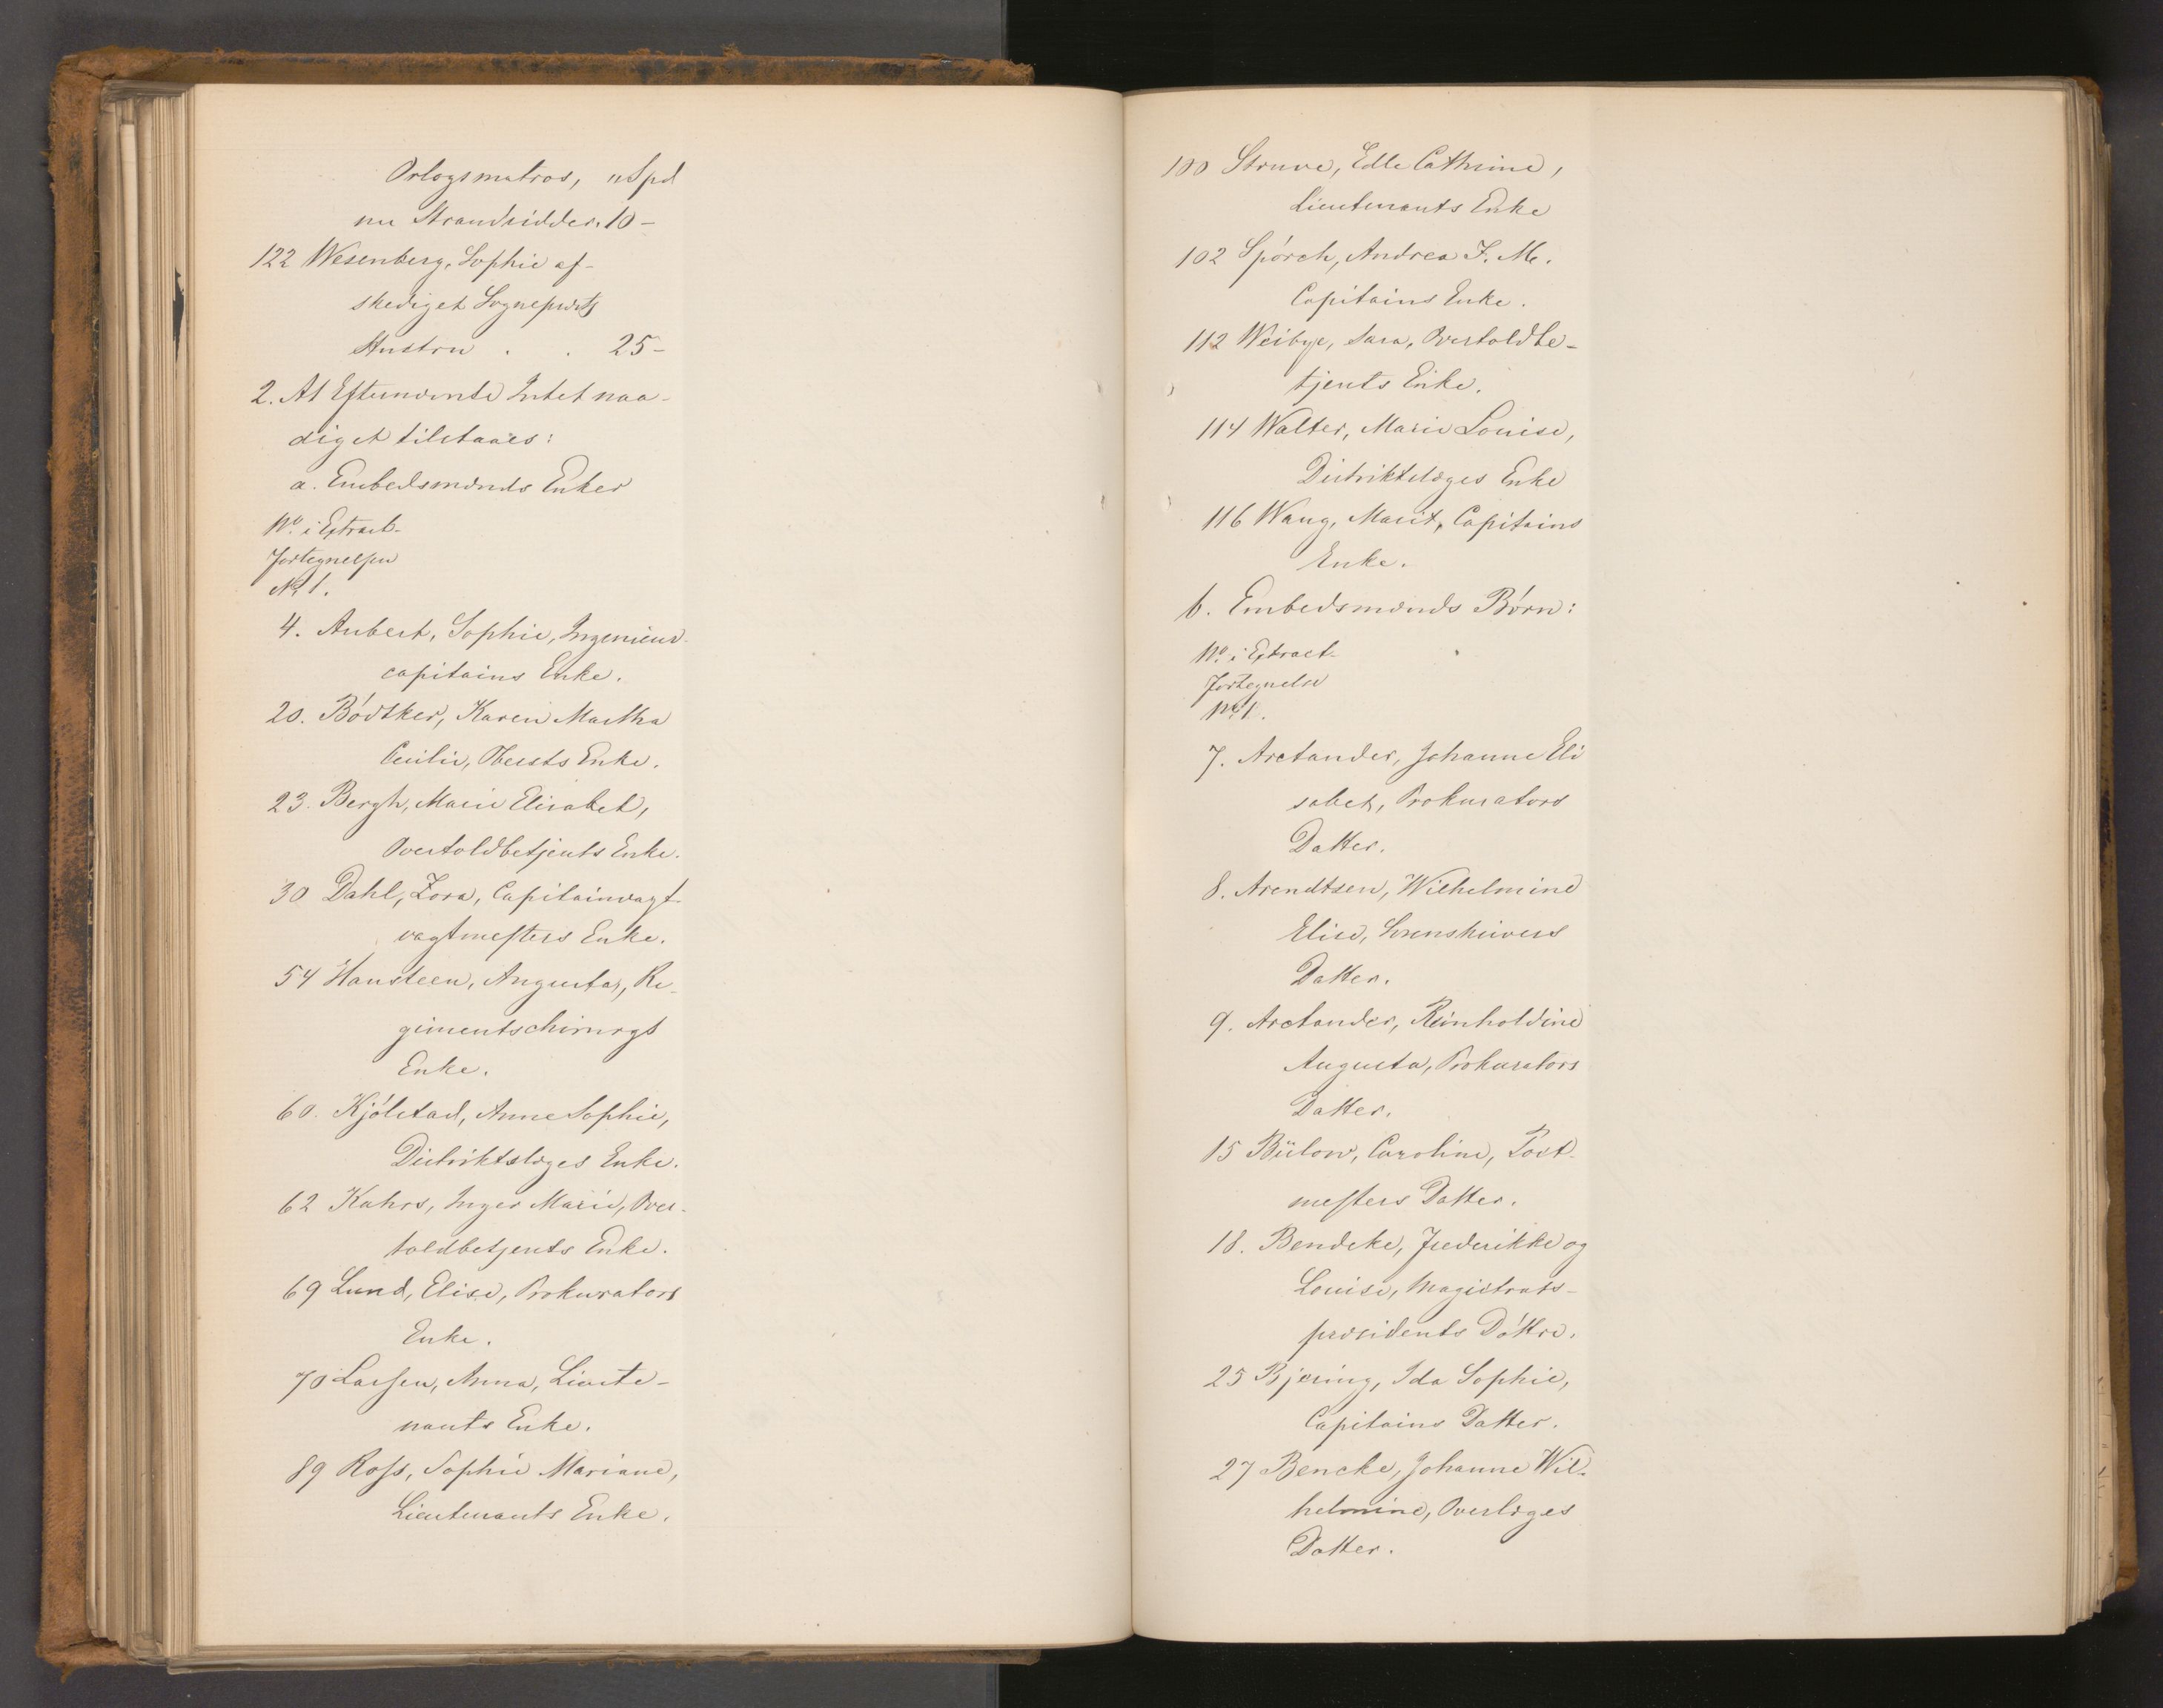 Orlogsmatros, " Spd
nu Strandsidder. 10 –
122 Wesenberg, Sophie af-
skediget Sogneprests
Hustru . . 25 –
2. At Efternævnte Intet naa-
digst tilstaaes:
a. Embedsmænds Enker
No. i Extract-
Fortegnelsen
No 1.
4. Aubert, Sophie, Ingenieur-
capitains Enke.
20. Bödtker, Karen Martha
Cecilie, Obersts Enke.
23. Bergh, Marie Elisabet,
Overtoldbetjents Enke.
30 Dahl, Zora, Capitainvagt-
vagtmesters Enke.
54 Hansteen, Augusta, Re-
gimentschirurgs
Enke.
60. Kjölstad, Anne Sophie,
Distriktslæges Enke.
62 Kahrs, Inger Marie, Over-
toldbetjents Enke.
69 Lund, Elise, Prokurators
Enke.
70 Larsen, Anna, Lieute-
nants Enke.
89 Ross, Sophie Mariane,
Lieutenants Enke.
100 Struve, Edle Cathrine,
Lieutenants Enke
102 Spörck, Andrea F. M.
Capitains Enke.
112 Weibye, Sara, Overtoldbe-
tjents Enke.
114 Walter, Marie Louise,
Distriktslæges Enke
116 Wang, Marit, Capitains
Enke.
b. Embedsmænds Börn:
No. i Extract-
Fortegnelse
No 1.
7. Arctander, Johanne Eli
sabet, Prokurators
Datter.
8. Arendtsen, Wilhelmine
Elise, Sorenskrivers
Datter.
9. Arctander, Reinholdine
Augusta, Prokurators
Datter.
15 Bülow, Caroline, Post-
mesters Datter.
18. Bendeke, Frederikke og
Louise, Magistrats-
præsidents Döttre.
25 Bjering, Ida Sophie,
Capitains Datter.
27 Bencke, Johanne Wil-
helmine, Overlæges
Datter.